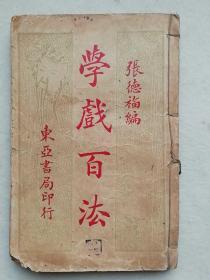 張德福編
学戲百法
東亞書局印行